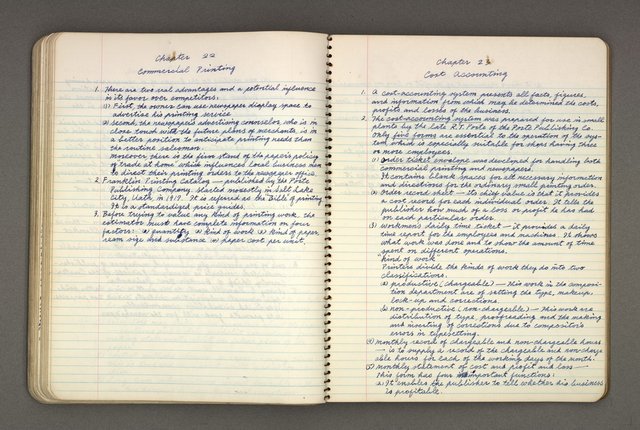 Chapter 22
Commercial Printing
1. There are two real advantages and a potential influence
in its favor over competitors.
(1) First, the owner can use newspaper display space to
advertise his printing service
(2) second, the newspaper's advertising counselor, who is in
close touch with the future plans of merchants, is in
a better position to anticipate printing needs than
the routine salesman.
Moreover there is the first stand of the paper's policy
of "trade at home" which influences local business men
to direct their printing orders to the newspaper office.
2. Franklin Printing Catalog — published by the Porte
Publishing Company, started modestly in Salt Lake
City, Utah, in 1917. It is referred as the Bible of printing
It is a standardized price guides.
3. Before trying to value any kind of printing work, the
estimator must have complete information on four
factors: (1) quantity (2) kind of work (3) kind of paper,
ream size and substance (4) paper cost per unit.
Chapter 23
Cost Accounting
1. A cost-accounting system presents all facts, figures,
and information from which may be determined the costs,
profits and losses of the business.
2. The cost-accounting system was prepared for use in small
plants by the late R.T. Porte of the Porte Publishing Co.
Only five forms are essential to the operation of the sys-
tem which is especially suitable for shops having three
or more employees.
(1) order ticket envelope was developed for handling both
commercial printing and newspapers.
It contains blank spaces for necessary information
and directions for the ordinary small printing order.
(2) Order record sheet — Its chief value is that it provides
a cost record for each individual order. It tells the
publisher how much of a loss or profit he has had
on each particular order.
(3) Workmen's daily time ticket — it provides a daily
time report for the employees and machines. It shows
what work was done and to show the amount of time
spent on different operations.
"Kind of Work"
Printers divide the kinds of work they do into two
classifications.
a) productive (chargeable) — this work in the composi-
tion department are of setting the type, makeup,
lock-up and corrections.
b) non-productive (non-chargeable) — This work are
distribution of type, proofreading and the making
and inserting of corrections due to compositor's
errors in typesetting.
(4) Monthly record of chargeable and non-chargeable hours
— is to supply a record of the chargeable and non-charge
able hours for each of the working days of the month.
(5) Monthly statement of cost and profit and loss —
This form has four important functions:
a. It enables the publisher to tell whether his business
is profitable.